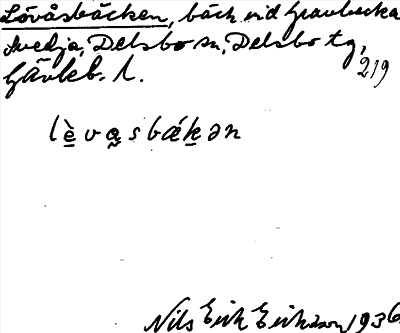 Lövåsbäcken, bäck vid Gravbacka
Svedja, Delsbo sn, Delsbo tg,
Gävleb. l.
219
lèvåsbǽkən
Nils Erik Eriksson 1936